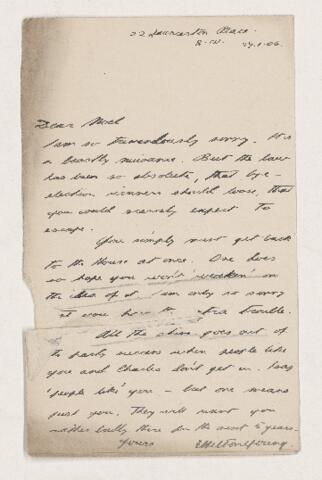 22 Launceston Place.
S.W.
27.1.06.
Dear Mark
I am so tremendously sorry. It's
a beastly nuisance. But the law
has been so absolute, that bye-
election winners should lose, that
you could scarcely expect to
escape.
You simply must get back
to the House at once. One does
so hope you won't 'weaken' on
the idea of it. I am only so sorry
you have extra trouble.
All the shine goes out of
the party success when people like
you and Charles don't get in. I say
'people like' you - but one means
just you. They will want you
rather badly there for the next 5 years.
Yours
E Hilton Young.